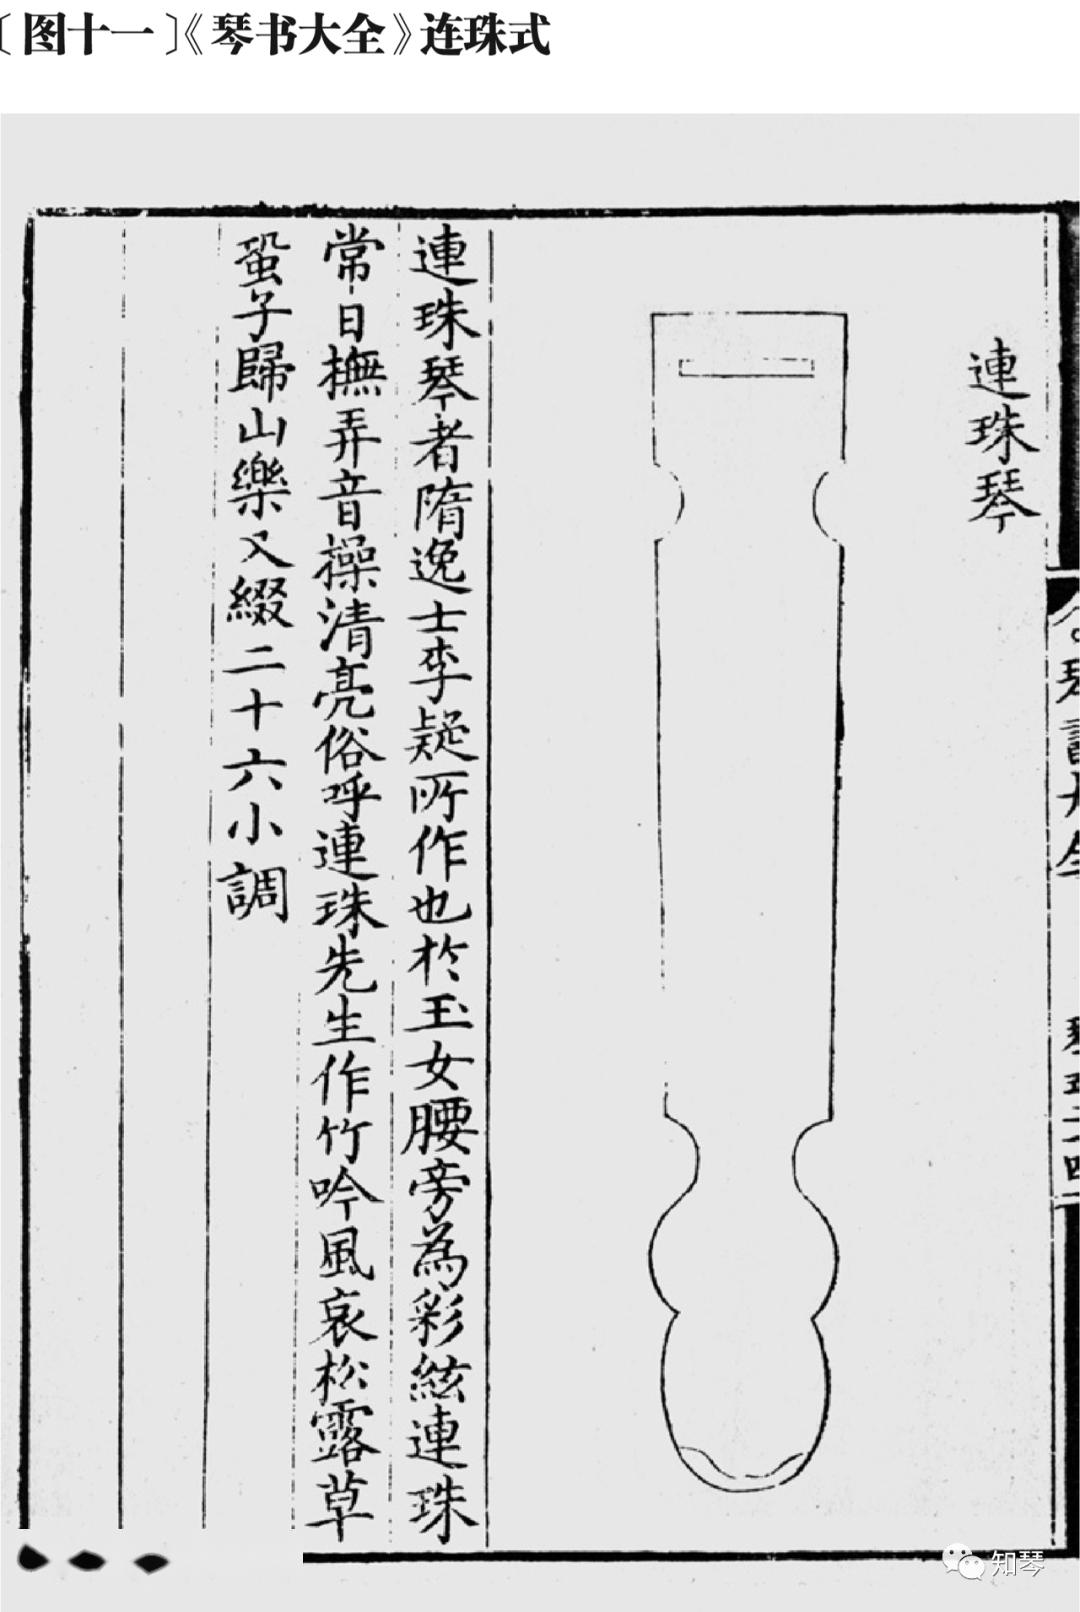 〔图十一〕《琴书大全》连珠式
連珠琴
連珠琴者隋逸士李疑所作也於玉女腰旁為彩絃連珠
常日撫弄音操清亮俗呼連珠先生作竹吟風哀松露草
蛩子歸山樂又綴二十六小調
知琴